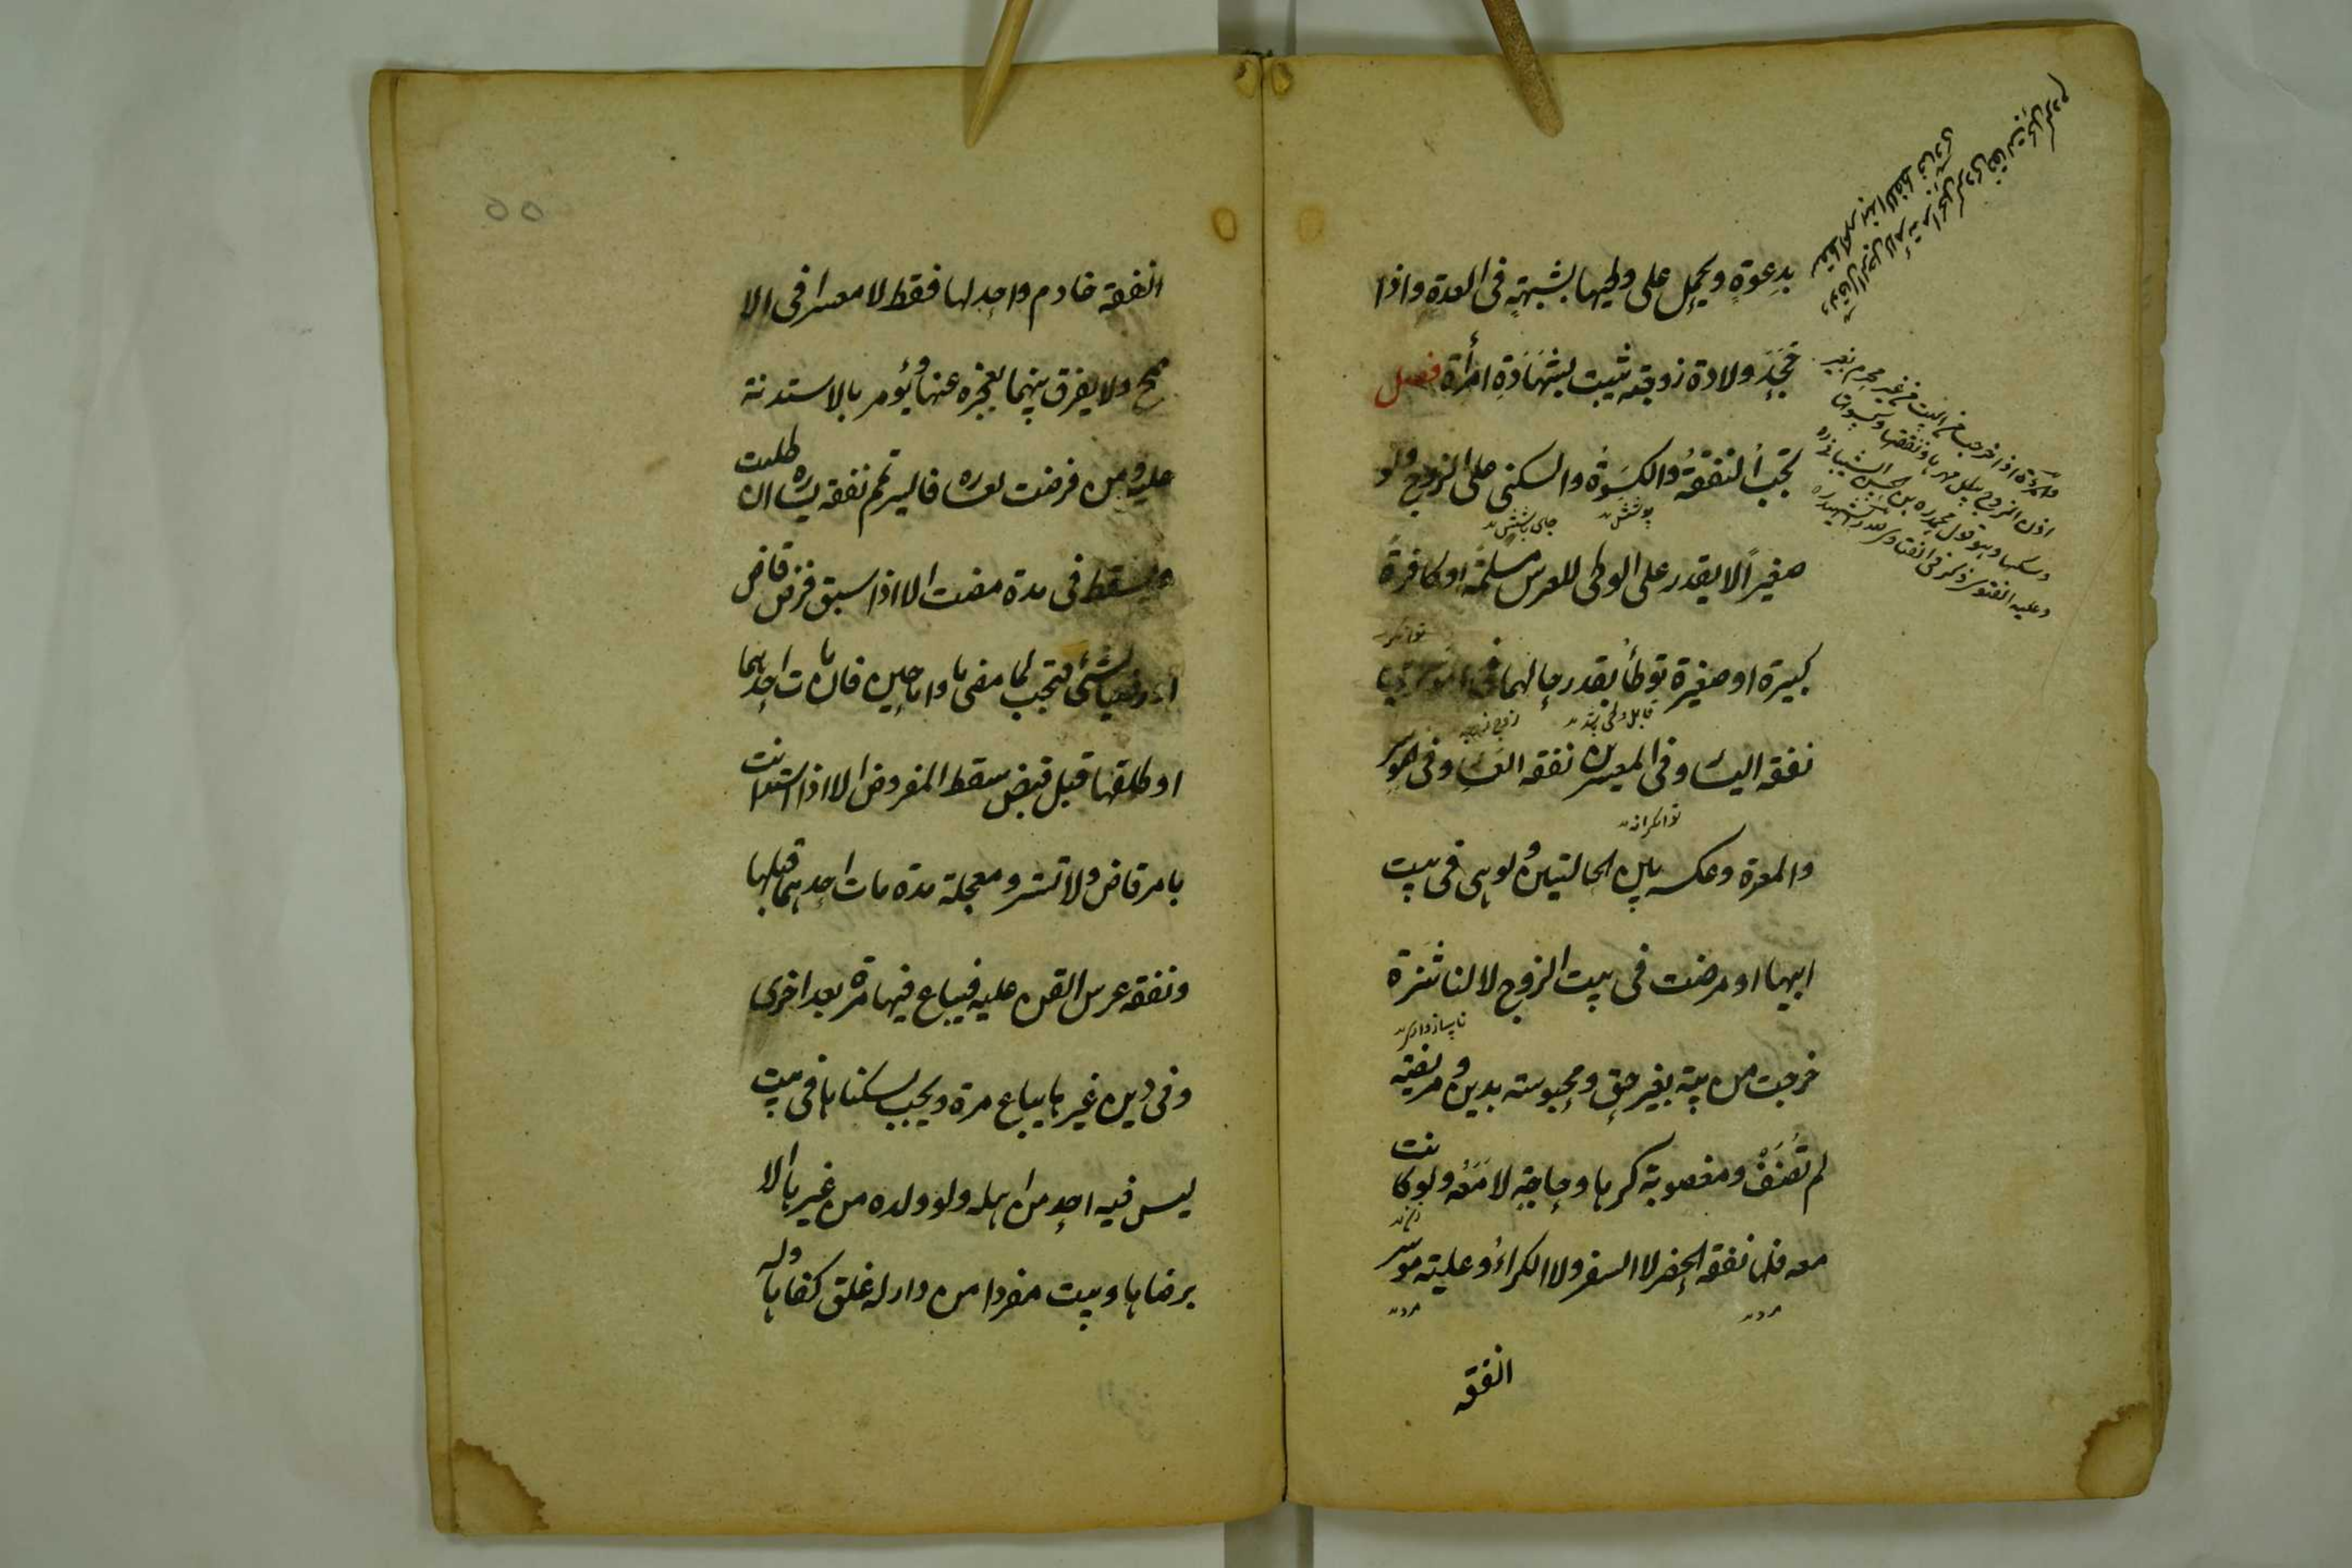 بدعوةٍ ويحمل على وطيها بشبهةٍ فى العدة واذا
جَحَدَ ولادة زوجته يثبت بِشَهَادَةِ امرأة فصل
تجبُ النفقةُ والكسوةُ والسكنى على الزوج ولو
پوشش
جاى باشش
صغيراً لا يقدر على الوطى للعرس مسلمةً او كافرةً
كبيرة او صغيرة توطأُ بقدر حالهما ففى
قابل وطى
نفقه اليسار وفى المعسرين نفقه العسار وفى الموسر
توانگرانه
والمعسرة وعكسه بين الحالتين ولو هى فى بيت
ابيها او مرضت فى بيت الزوج لا لناشزة
خرجت من بيته بغير حق ومحبوسته بدين ومريضة
لم تُضَفْ ومغصوبة كرها وحاجة لا مَعَهُ ولو كانت
معه فلها نفقه الحضر لا السفر ولا الكراءُ وعليه موسر
النفقه
والمرءة اذا خرجت من البيت من غير محرم بغير
اذن الزوج يبطل مهرها ونفقتها وكسوتها
وسكنها وهو قول محمد بن الحسن الشيبانى
وعليه الفتوى ذكر فى الفتاوى
٥٥
النفقه خادم واحد لها فقط لا معسرا فى الا
صح ولا يفرق بينهما بعجزه عنها ويؤمر بالاستدنة
عليه ومن فرضت لعساره فايسر تمم نفقه يساره ان طلبت
ويسقط فى مدة مضت الا اذا سبق فرض قاض
او رضيا بشئى فتجب لما مضى ما داما حيين فان مات احدهما
او طلقها قبل قبض سقط المفروض الا اذا استدانت
بامر قاض ولا تسترد معجلة مدة مات احدهما قبلها
ونفقه عرس القن عليه فيباع فيها مرة بعد اخرى
وفى دين غيرها يباع مرة ويجب سكناها فى بيت
ليس فيه احد من اهله ولو ولده من غيرها الا
برضاها وبيت مفردا من دار له غلق كفاها وله